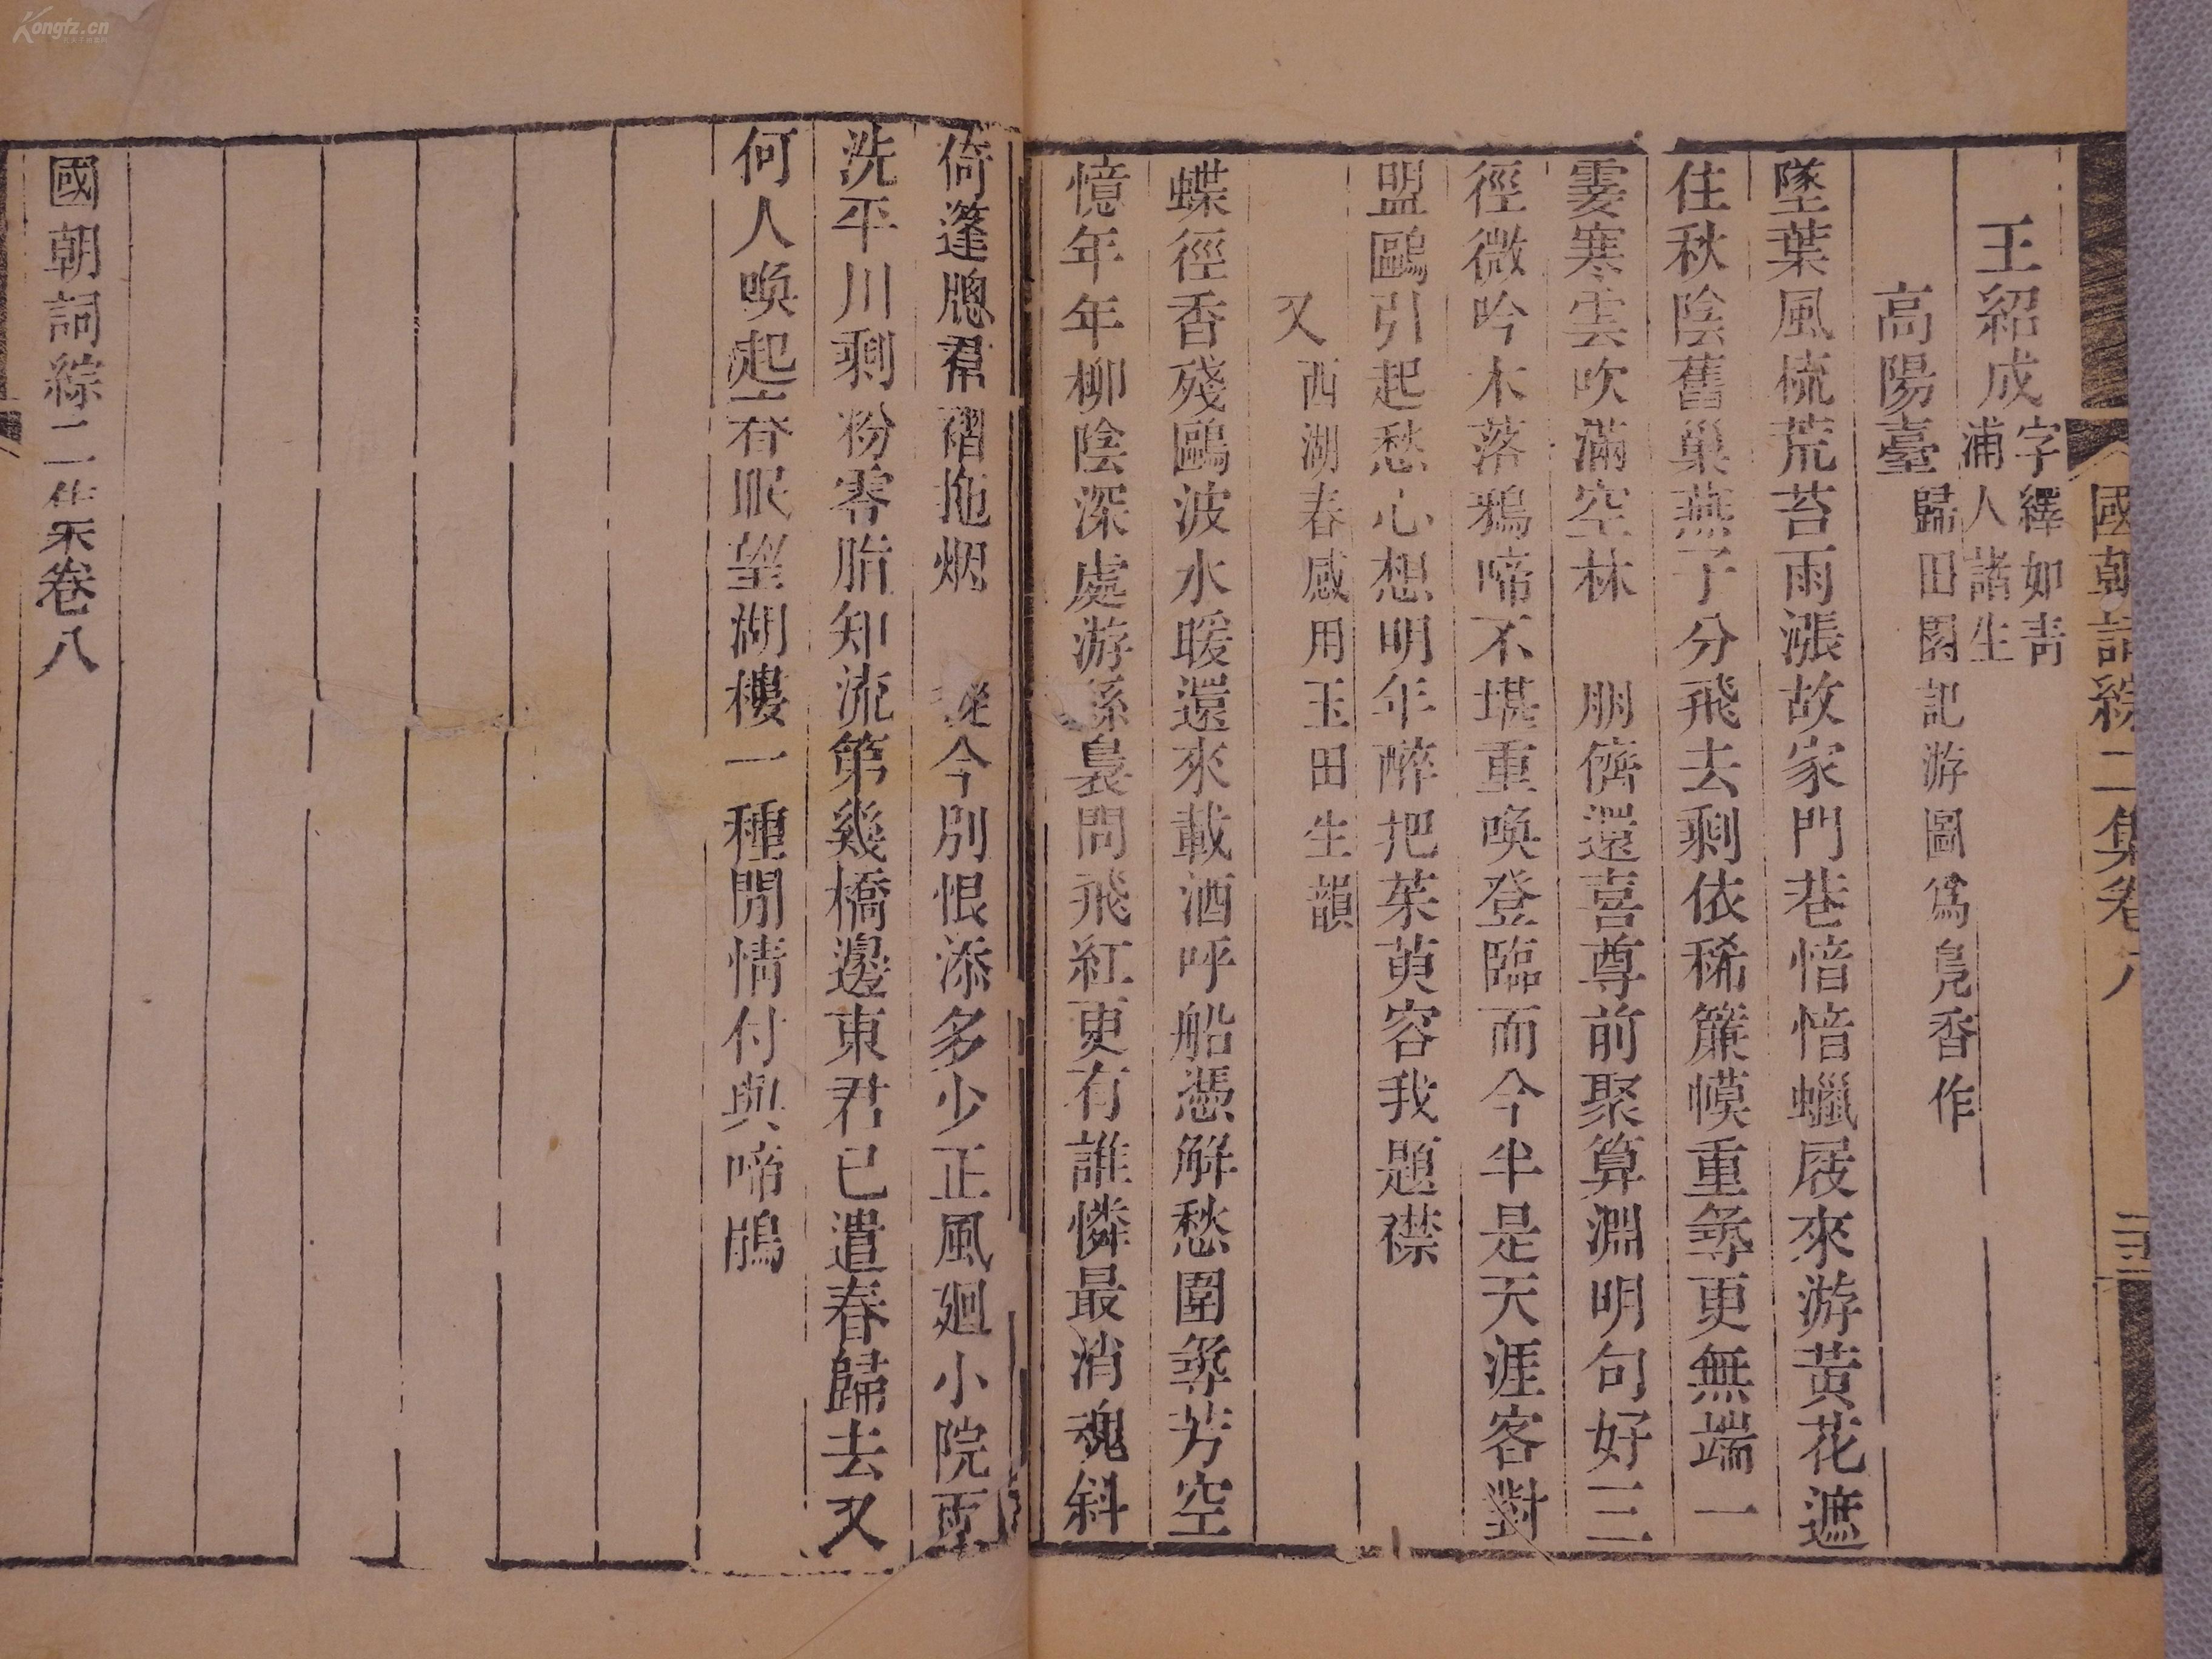 國朝詞綜二集卷八
王紹成字繹如青浦人諸生
高陽臺歸田園記游圖爲鳧香作
墜葉風梳荒苔雨漲故家門巷愔愔蠟屐來游黃花遮
住秋陰舊巢燕子分飛去剩依稀簾幙重㝷更無端一
霎寒雲吹滿空林 朋儕還喜尊前聚算淵明句好三
徑微吟木落鴉啼不堪重喚登臨而今半是天涯客對
盟鷗引起愁心想明年醉把茱萸容我題襟
又西湖春感用玉田生韻
蝶徑香殘鷗波水暖還來載酒呼船憑解愁圍㝷芳空
憶年年柳陰深處游絲裊問飛紅更有誰憐最消魂斜
倚蓬牕羣褶拖烟 從今別恨添多少正風廻小院雨
洗平川剩粉零脂知流第幾橋邊東君已遣春歸去又
何人喚起春眠望湖樓一種閒情付與啼鵑
國朝詞綜二集卷八
Kongfz.cn